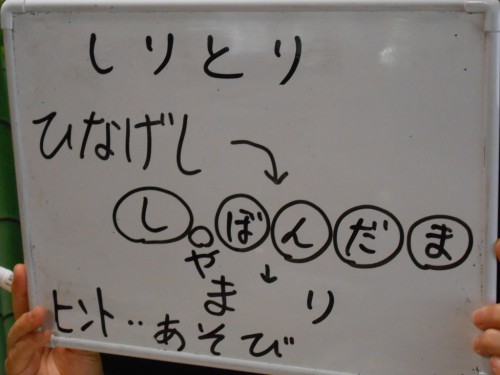 しりとり
ひなげし
し○ぼんだま
や
ま り
ヒント‥あそび